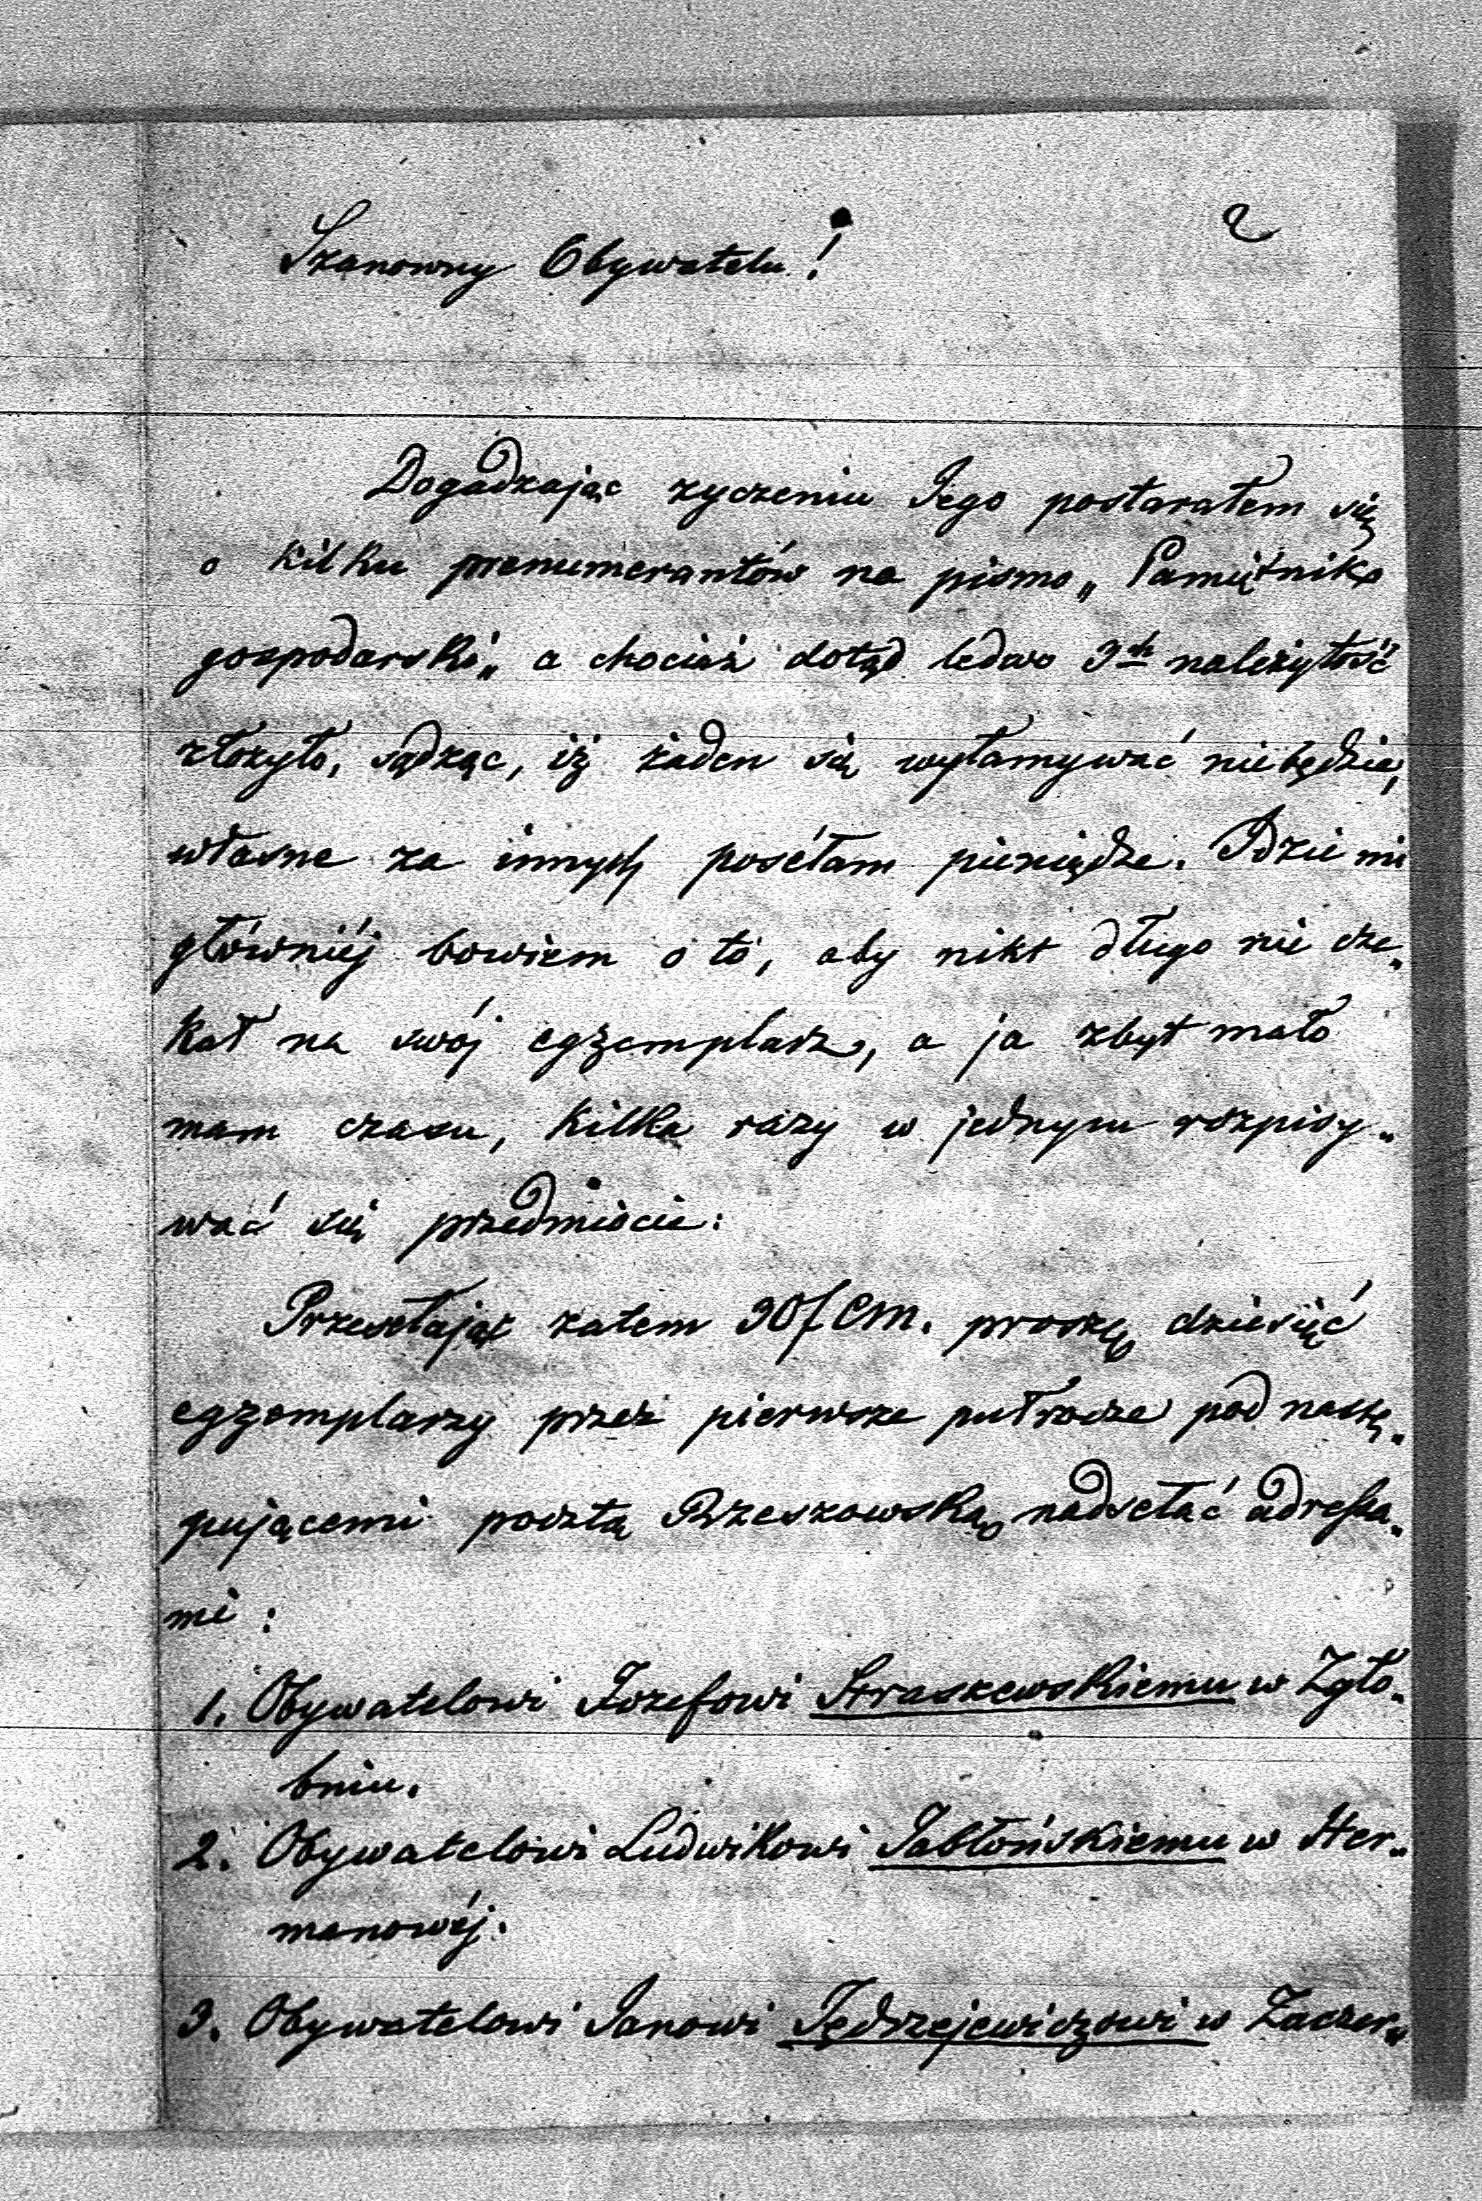 2
Szanowny Obywatelu!
Dogadzając zyczeniu Jego postarałem się
o kilku prenumerantów na pismo „Pamiętnik
gospodarski„ a chociaż dotąd ledwo 3ch należytość
złożyło, sądząc, iż żaden się wyłamywać niebędzie,
własne za innych posełam pieniądze. Idzie mi
główniéj bowiem o to, aby nikt długo nie cze„
kał na swój egzemplarz, a ja zbyt mało
mam czasu, kilka razy w jednym rozpisy„
wać się przedmiocie:
Przesełając zatem 30f CM. proszę dziesięć
egzemplarzy przez pierwsze pułrocze pod nastę„
pującemi pocztą Rzeszowską nadsełać adressa„
mi:
1. Obywatelowi Jozefowi Straszewskiemu w Zgło„
bniu.
2. Obywatelowi Ludwikowi Jabłońskiemu w Her„
manowéj.
3. Obywatelowi Janowi Jędrzejewiczowi w Zaczer„